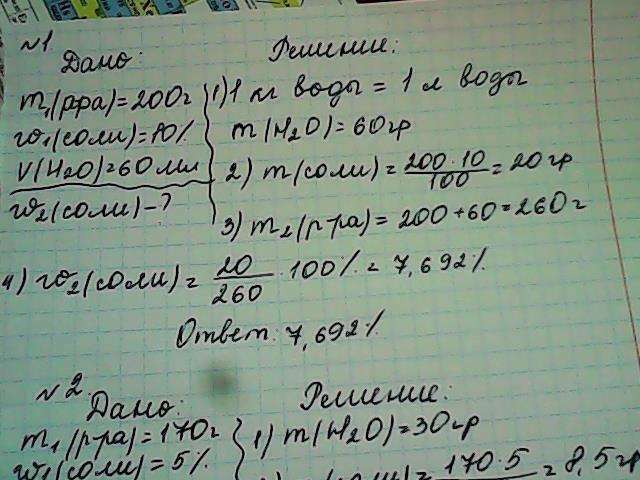 №1
Дано:
Решение:
m₁(р-ра)=200г
w₁(соли)=10%
V(H₂O)=60 мл
w₂(соли)-?
1) 1 кг воды = 1 л воды
m(H₂O)=60гр
2) m(соли)= 200·10/100 = 20гр
3) m₂(р-ра)= 200+60=260г
4) w₂(соли)= 20/260 · 100% = 7,692%
Ответ: 7,692%
№2
Дано:
Решение:
m₁(р-ра)=170г
w₁(соли)=5%
1) m(H₂O)=30гр
170·5 = 8,5гр